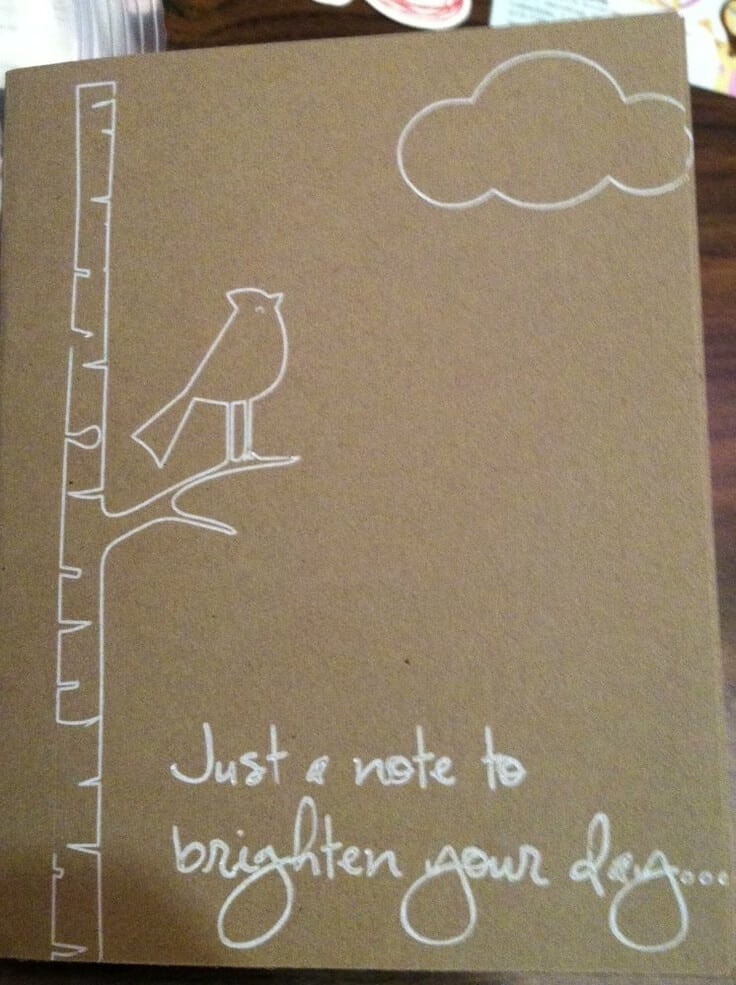 Just a note to
brighten your day...